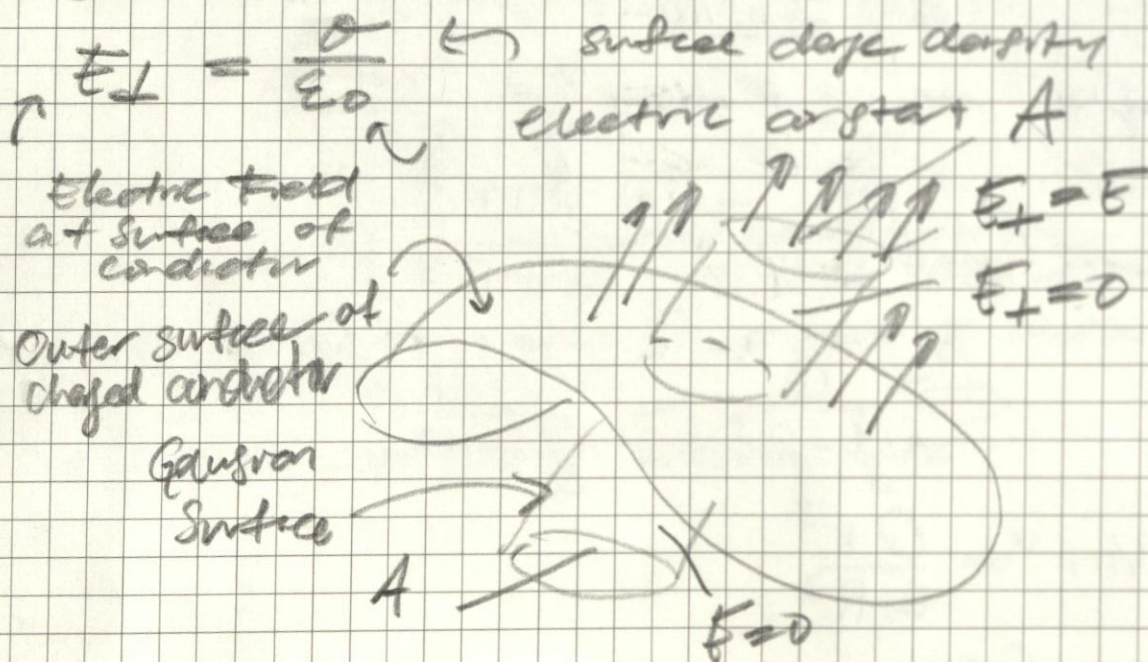 E⊥ = σ/ε0 ← surface charge density
electric constant A
Electric Field
at surface of
conductor
E⊥ = E
E⊥ = 0
Outer surface of
charged conductor
Gaussian
Surface
A
E=0